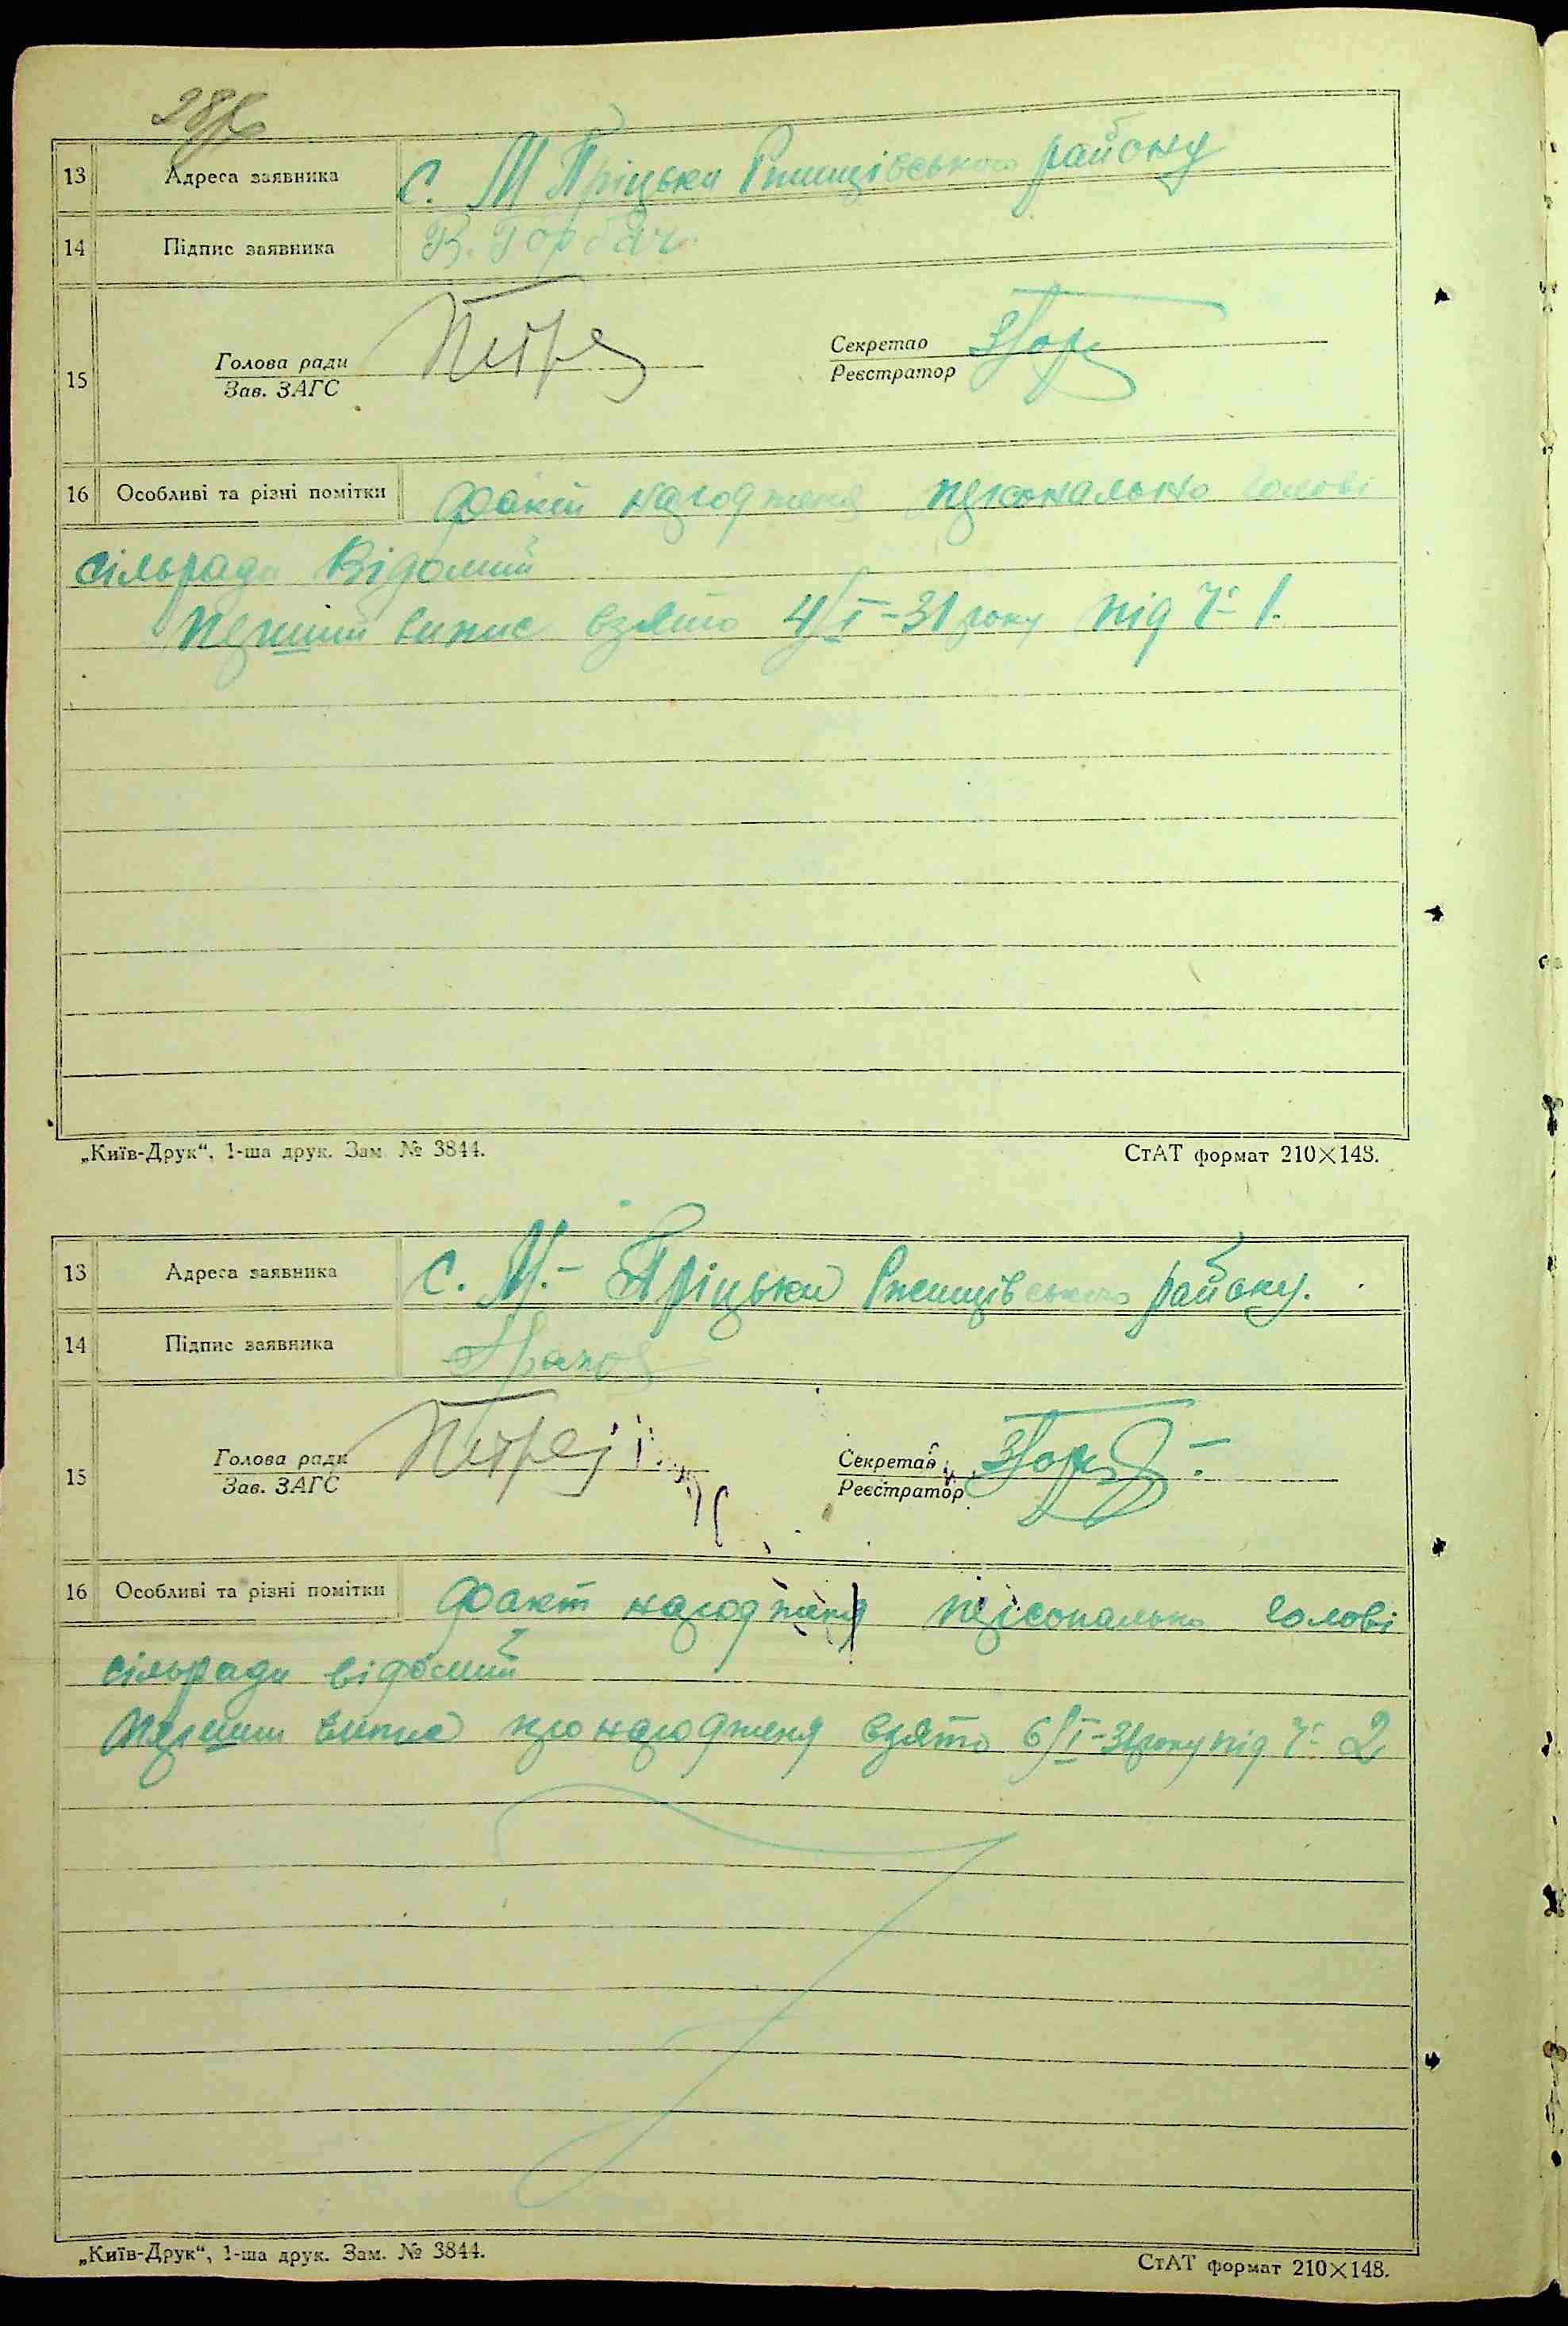 13 Адреса заявника с. М Пріцьки Ржищівського району
14 Підпис заявника В. Горбач
Голова ради Секретар
15
Зав. ЗАГС Реєстратор
16 Особливі та різні помітки Факт народженя персонально голові
сільради Відомий
Перший випис взято 4/I-31 року під Ч 1.
„Київ-Друк“, 1-ша друк. Зам. № 3844. СтАТ формат 210×148.
13 Адреса заявника с. М.- Пріцьки Ржищівського району.
14 Підпис заявника
Голова ради Секретар
15
Зав. ЗАГС Реєстратор
16 Особливі та різні помітки Факт народженя персонально голові
сільради відомий
Перший випис про народженя взято 6/I-31 року під Ч 2
„Київ-Друк“, 1-ша друк. Зам. № 3844. СтАТ формат 210×148.